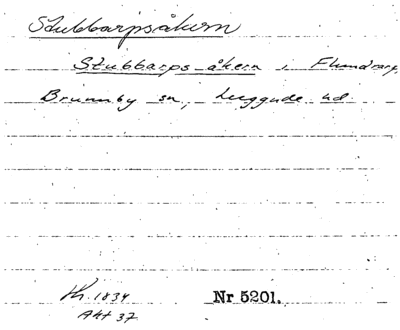 Stubbarpsåkern
Stubbarps åkern i Flundrarp,
Brunnby sn, Luggude hd
Nr 5201.
1834
Akt 37